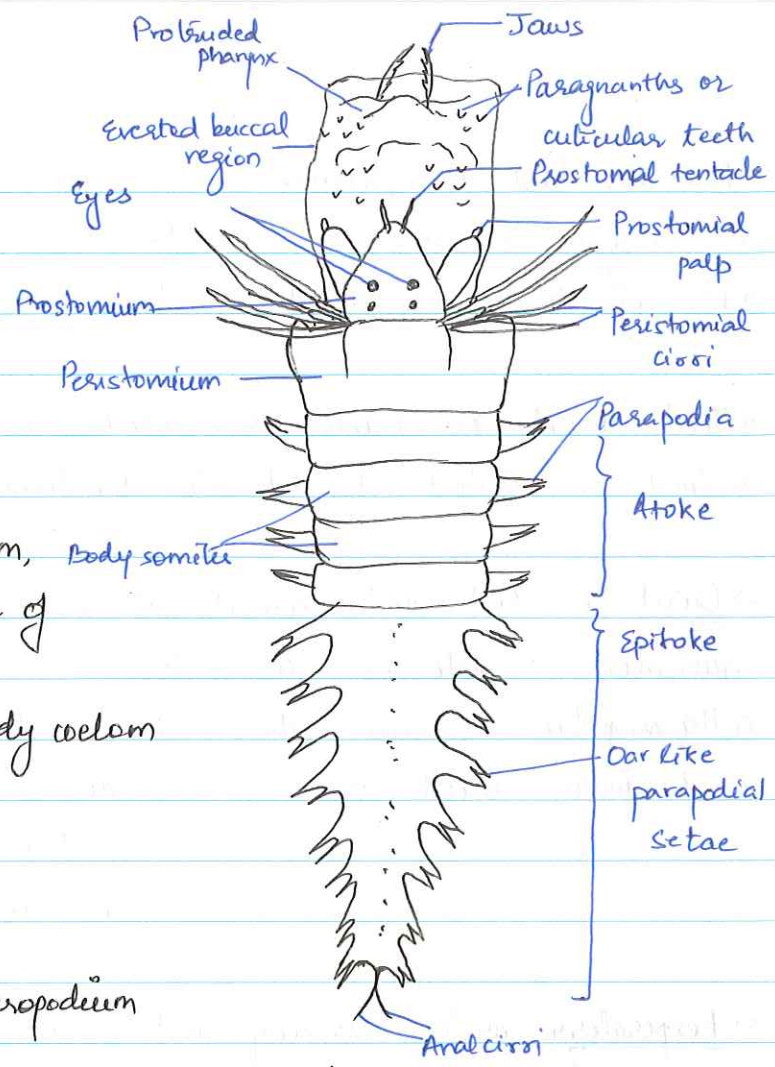 Jaws
Protruded
pharynx
Paragnanths or
cuticular teeth
Everted buccal
region
Prostomal tentacle
Eyes
Prostomial
palp
Prostomium
Peristomial
cirri
Peristomium
Parapodia
Atoke
Body somites
m,
of
Epitoke
dy coelom
Oar like
parapodial
setae
ropodium
Anal cirri